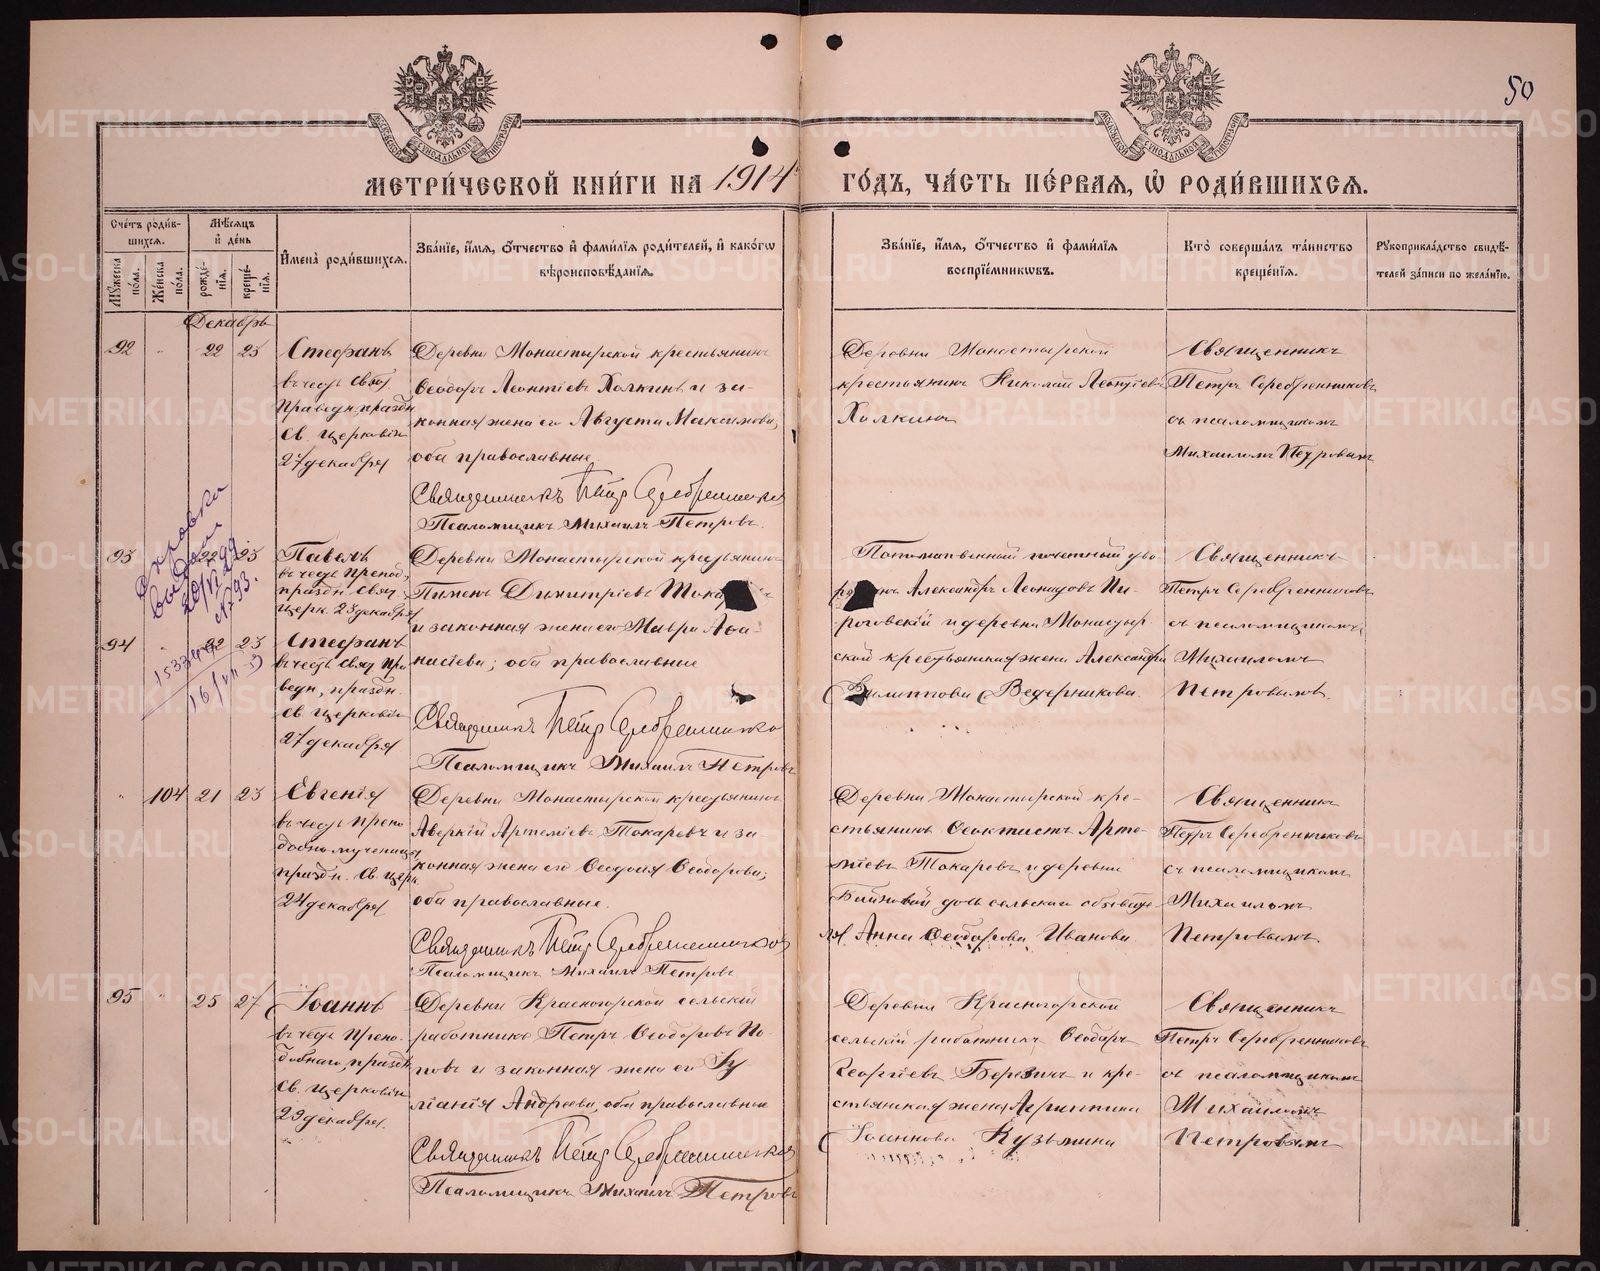 50
МЕТРИ́ЧЕСКОЙ КНИ́ГИ НА 1914
ГО́ДЪ, ЧА́СТЬ ПЕ́РВАЯ, Ѽ РОДИ́ВШИХСЯ.
Сче́тъ роди́в-
шихся.
Мѣ́сяцъ
и де́нь
Мꙋ́жеска
по́ла.
Же́нска
по́ла.
рожде́-
нїя.
креще́-
нїя.
Имена̀ роди́вшихся.
Зва́нїе, и́мя, о́тчество и фами́лїя роди́телей, и како́гѡ
вѣроисповѣ́данїя.
Зва́нїе, и́мя, о́тчество и фами́лїя
воспрїе́мниковъ.
Кто̀ соверша́лъ та́инство
креще́нїя.
Рꙋкоприкла́дство свидѣ́-
телей за́писи по жела́нїю.
Декабрь
92 " 22 23
Стефанъ
въ честь свят.
Праведн., праздн.
Св. церковію
27 декабря
Деревни Монастырской крестьянинъ
Ѳеодоръ Леонтіевъ Холкинъ и за-
конная жена его Августа Максимова,
оба православные.
Священникъ Петръ Серебренниковъ
Псаломщикъ Михаилъ Петровъ.
Деревни Монастырской
крестьянинъ Николай Леонтіевъ
Холкинъ
Священникъ
Петръ Серебренниковъ
съ псаломщикомъ
Михаиломъ Петровымъ
93 22 23
Павелъ
въ честь препод.,
праздн. Свят.
церк. 23 декабря
94 " 22 23
Стефанъ
въ честь свят. пра-
ведн., праздн.
св. церковію
27 декабря
Деревни Монастырской крестьянинъ
Пименъ Димитріевъ Токар
и законная жена его Мавра Аѳа-
насіева; оба православные
Священникъ Петръ Серебренниковъ
Псаломщикъ Михаилъ Петровъ
Потомственный почетный дво-
Александръ Леонидовъ Пи-
роговскій и деревни Монастыр-
ской крестьянская жена Александра
Филиппова Ведерникова.
Священникъ
Петръ Серебренниковъ
съ псаломщикомъ
Михаиломъ
Петровымъ.
справка
выдан
20/VI 29
№ 793.
16/VII
" 104 21 23
Евгенія
въ честь препо-
добномученицы,
праздн. Св. церк.
24 декабря
Деревни Монастырской крестьянинъ
Аверкій Артеміевъ Токаревъ и за-
конная жена его Ѳеодосія Ѳеодорова,
оба православные.
Священникъ Петръ Серебренниковъ
Псаломщикъ Михаилъ Петровъ
Деревни Монастырской кре-
стьянинъ Ѳеоктистъ Арте-
міевъ Токаревъ и деревни
Байновой дочь сельскаго обывате-
ля Анна Ѳеодорова Иванова
Священникъ
Петръ Серебренниковъ
съ псаломщикомъ
Михаиломъ
Петровымъ
95 " 25 27
Іоаннъ
въ честь препо-
добнаго, праздн.
св. церковію
29 декабря.
Деревни Красногорской сельскій
работникъ Петръ Ѳеодоровъ По-
повъ и законная жена его Іу-
ліанія Андреева, оба православные
Священникъ Петръ Серебренниковъ
Псаломщикъ Михаилъ Петровъ
Деревни Красногорской
сельскій работникъ Ѳеодоръ
Георгіевъ Березинъ и кре-
стьянская жена Агриппина
Іоаннова Кузьмина
Священникъ
Петръ Серебренниковъ
съ псаломщикомъ
Михаиломъ
Петровымъ
METRIKI.GASO-URAL.RU